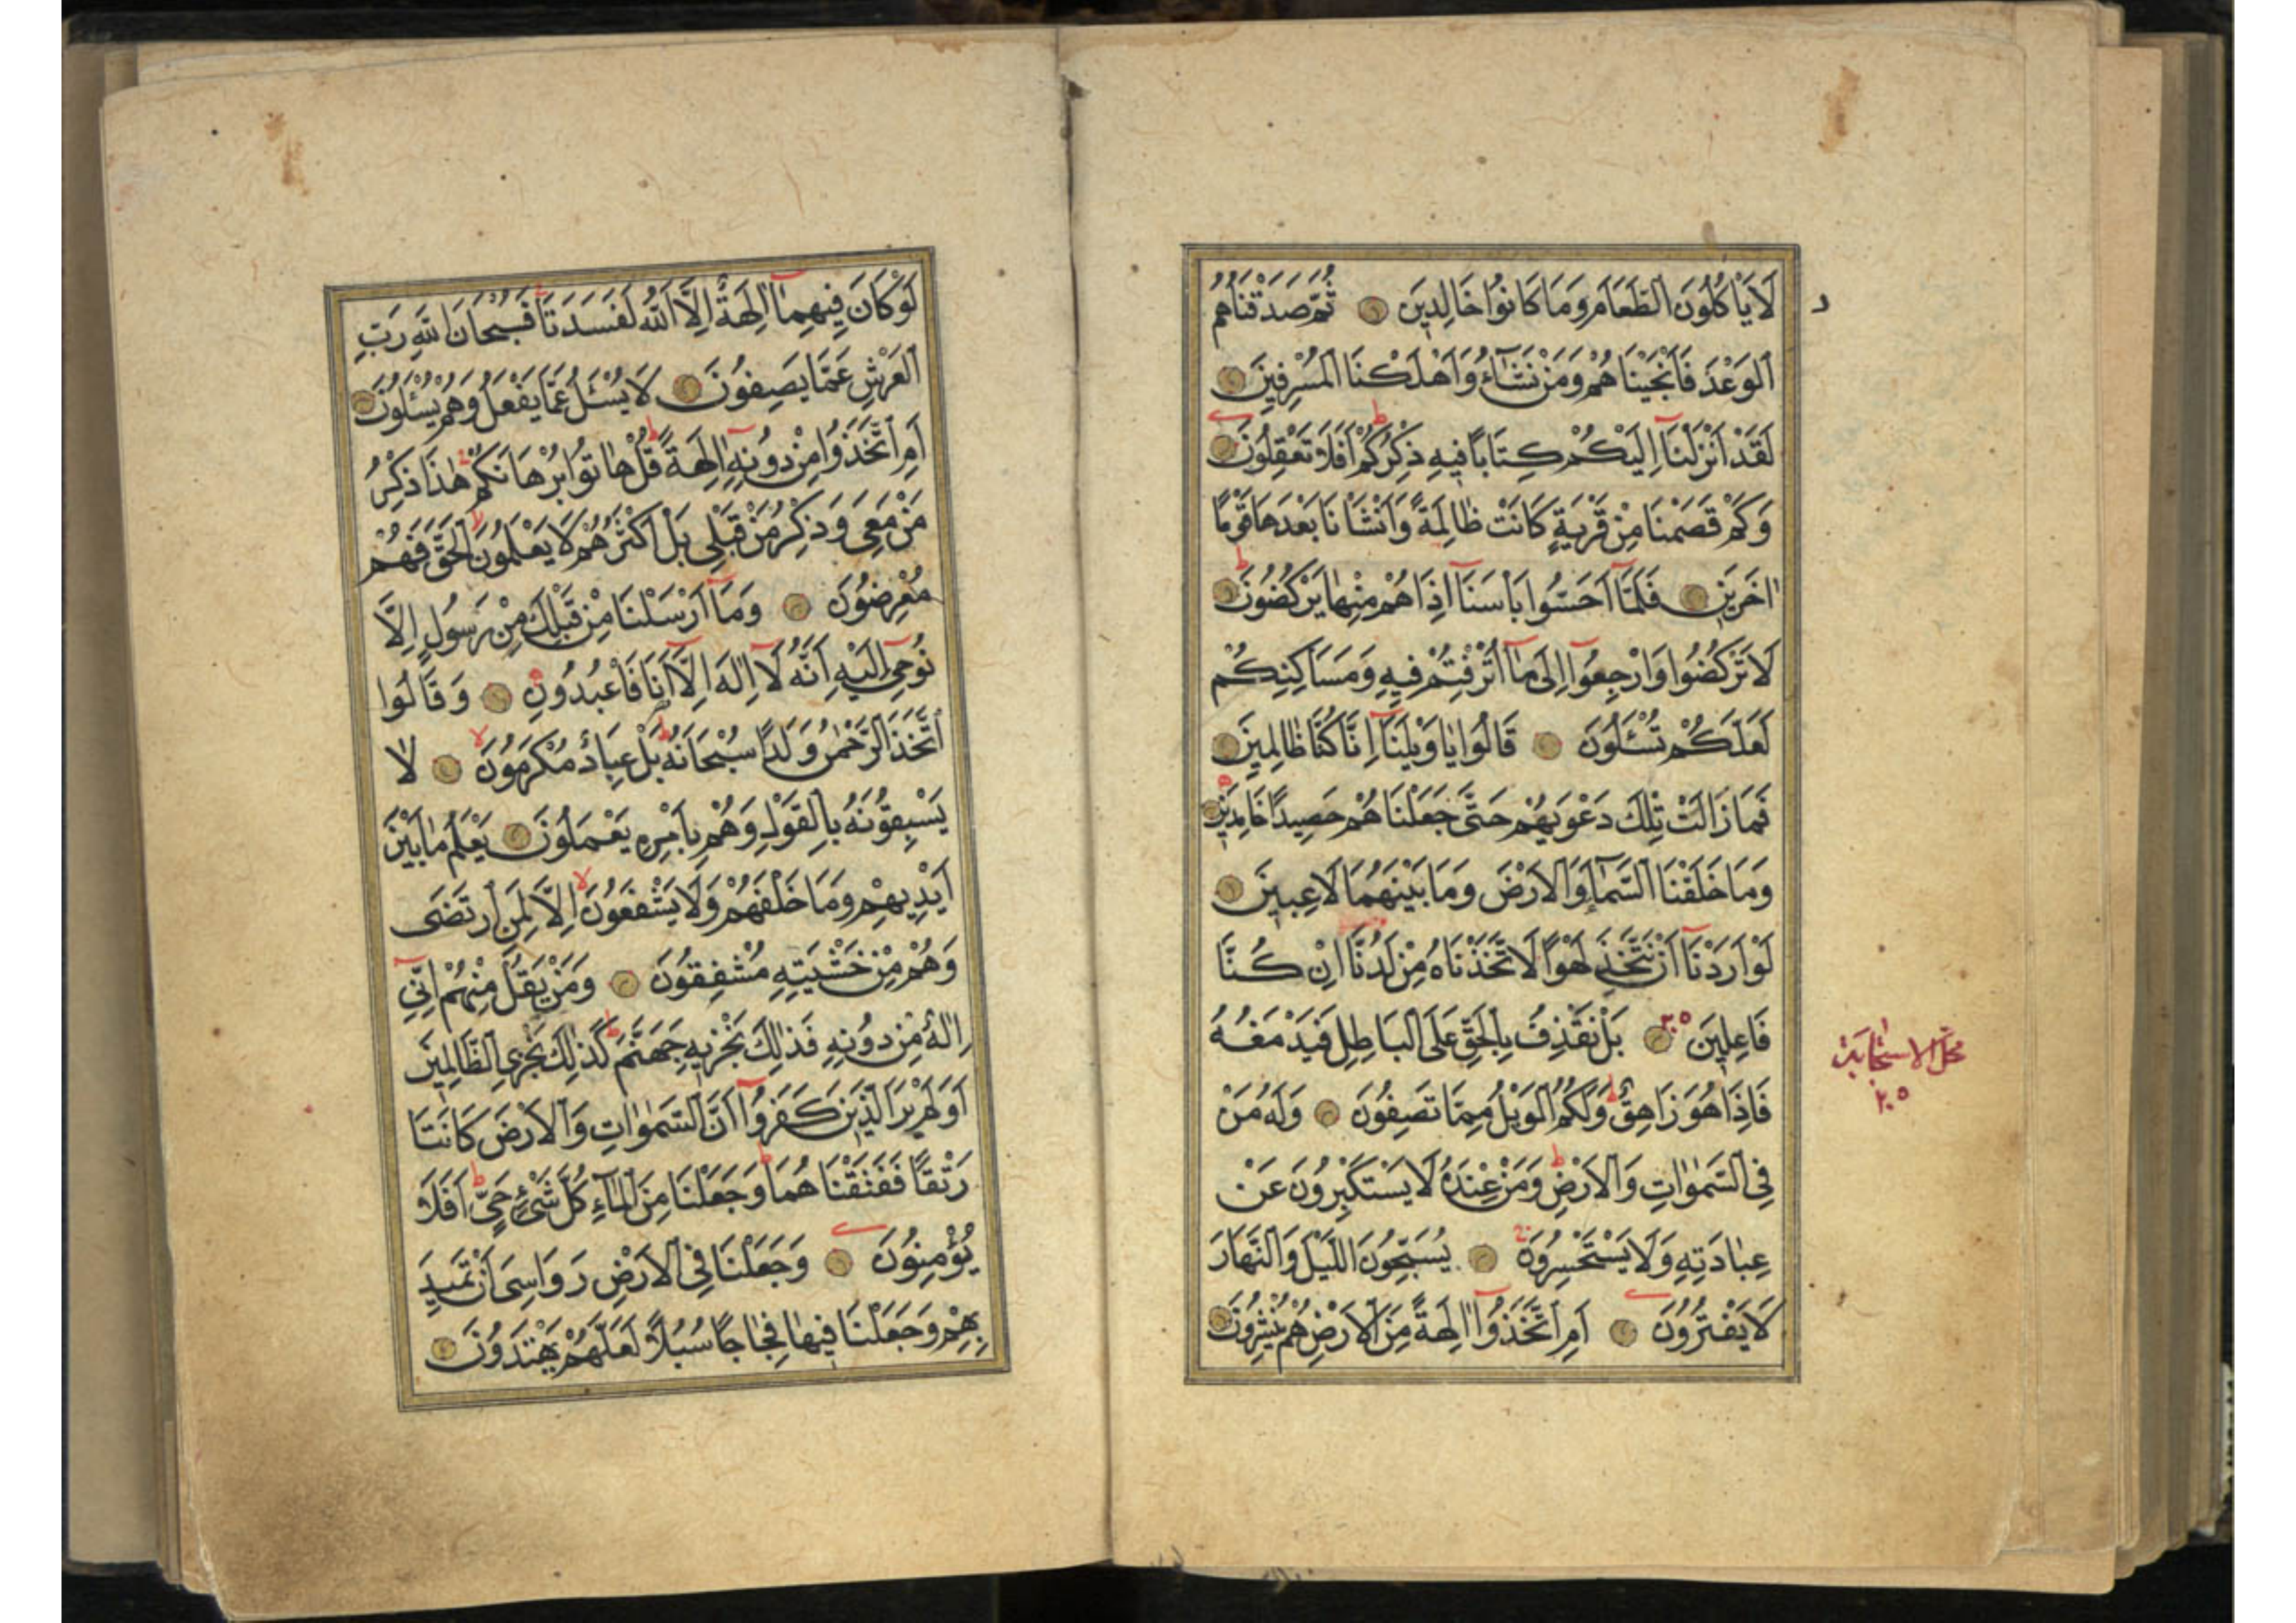 لَا يَأْكُلُونَ الطَّعَامَ وَمَا كَانُوا خَالِدِينَ ثُمَّ صَدَقْنَاهُمُ
الْوَعْدَ فَأَنْجَيْنَاهُمْ وَمَنْ نَشَاءُ وَأَهْلَكْنَا الْمُسْرِفِينَ
لَقَدْ أَنْزَلْنَا إِلَيْكُمْ كِتَابًا فِيهِ ذِكْرُكُمْ أَفَلَا تَعْقِلُونَ
وَكَمْ قَصَمْنَا مِنْ قَرْيَةٍ كَانَتْ ظَالِمَةً وَأَنْشَأْنَا بَعْدَهَا قَوْمًا
اٰخَرِينَ فَلَمَّا أَحَسُّوا بَأْسَنَا إِذَا هُمْ مِنْهَا يَرْكُضُونَ
لَا تَرْكُضُوا وَارْجِعُوا إِلَى مَا أُتْرِفْتُمْ فِيهِ وَمَسَاكِنِكُمْ
لَعَلَّكُمْ تُسْئَلُونَ قَالُوا يَا وَيْلَنَا إِنَّا كُنَّا ظَالِمِينَ
فَمَا زَالَتْ تِلْكَ دَعْوَيهُمْ حَتَّى جَعَلْنَاهُمْ حَصِيدًا خَامِدِينَ
وَمَا خَلَقْنَا السَّمَاءَ وَالْأَرْضَ وَمَا بَيْنَهُمَا لَاعِبِينَ
لَوْ أَرَدْنَا أَنْ نَتَّخِذَ لَهْوًا لَاتَّخَذْنَاهُ مِنْ لَدُنَّا إِنْ كُنَّا
فَاعِلِينَ بَلْ نَقْذِفُ بِالْحَقِّ عَلَى الْبَاطِلِ فَيَدْمَغُهُ
فَإِذَا هُوَ زَاهِقٌ وَلَكُمُ الْوَيْلُ مِمَّا تَصِفُونَ وَلَهُ مَنْ
فِي السَّمٰوَاتِ وَالْأَرْضِ وَمَنْ عِنْدَهُ لَا يَسْتَكْبِرُونَ عَنْ
عِبَادَتِهِ وَلَا يَسْتَحْسِرُونَ يُسَبِّحُونَ اللَّيْلَ وَالنَّهَارَ
لَا يَفْتُرُونَ أَمِ اتَّخَذُوا اٰلِهَةً مِنَ الْأَرْضِ هُمْ يُنْشِرُونَ
محل الاستجابة
٢٠٥
لَوْ كَانَ فِيهِمَا اٰلِهَةٌ إِلَّا اللّٰهُ لَفَسَدَتَا فَسُبْحَانَ اللّٰهِ رَبِّ
الْعَرْشِ عَمَّا يَصِفُونَ لَا يُسْئَلُ عَمَّا يَفْعَلُ وَهُمْ يُسْئَلُونَ
أَمِ اتَّخَذُوا مِنْ دُونِهِ اٰلِهَةً قُلْ هَاتُوا بُرْهَانَكُمْ هٰذَا ذِكْرُ
مَنْ مَعِيَ وَذِكْرُ مَنْ قَبْلِي بَلْ أَكْثَرُهُمْ لَا يَعْلَمُونَ الْحَقَّ فَهُمْ
مُعْرِضُونَ وَمَا أَرْسَلْنَا مِنْ قَبْلِكَ مِنْ رَسُولٍ إِلَّا
نُوحِي إِلَيْهِ أَنَّهُ لَا إِلٰهَ إِلَّا أَنَا فَاعْبُدُونِ وَقَالُوا
اتَّخَذَ الرَّحْمٰنُ وَلَدًا سُبْحَانَهُ بَلْ عِبَادٌ مُكْرَمُونَ لَا
يَسْبِقُونَهُ بِالْقَوْلِ وَهُمْ بِأَمْرِهِ يَعْمَلُونَ يَعْلَمُ مَا بَيْنَ
أَيْدِيهِمْ وَمَا خَلْفَهُمْ وَلَا يَشْفَعُونَ إِلَّا لِمَنِ ارْتَضَى
وَهُمْ مِنْ خَشْيَتِهِ مُشْفِقُونَ وَمَنْ يَقُلْ مِنْهُمْ إِنِّي
إِلٰهٌ مِنْ دُونِهِ فَذٰلِكَ نَجْزِيهِ جَهَنَّمَ كَذٰلِكَ نَجْزِي الظَّالِمِينَ
أَوَلَمْ يَرَ الَّذِينَ كَفَرُوا أَنَّ السَّمٰوَاتِ وَالْأَرْضَ كَانَتَا
رَتْقًا فَفَتَقْنَاهُمَا وَجَعَلْنَا مِنَ الْمَاءِ كُلَّ شَيْءٍ حَيٍّ أَفَلَا
يُؤْمِنُونَ وَجَعَلْنَا فِي الْأَرْضِ رَوَاسِيَ أَنْ تَمِيدَ
بِهِمْ وَجَعَلْنَا فِيهَا فِجَاجًا سُبُلًا لَعَلَّهُمْ يَهْتَدُونَ